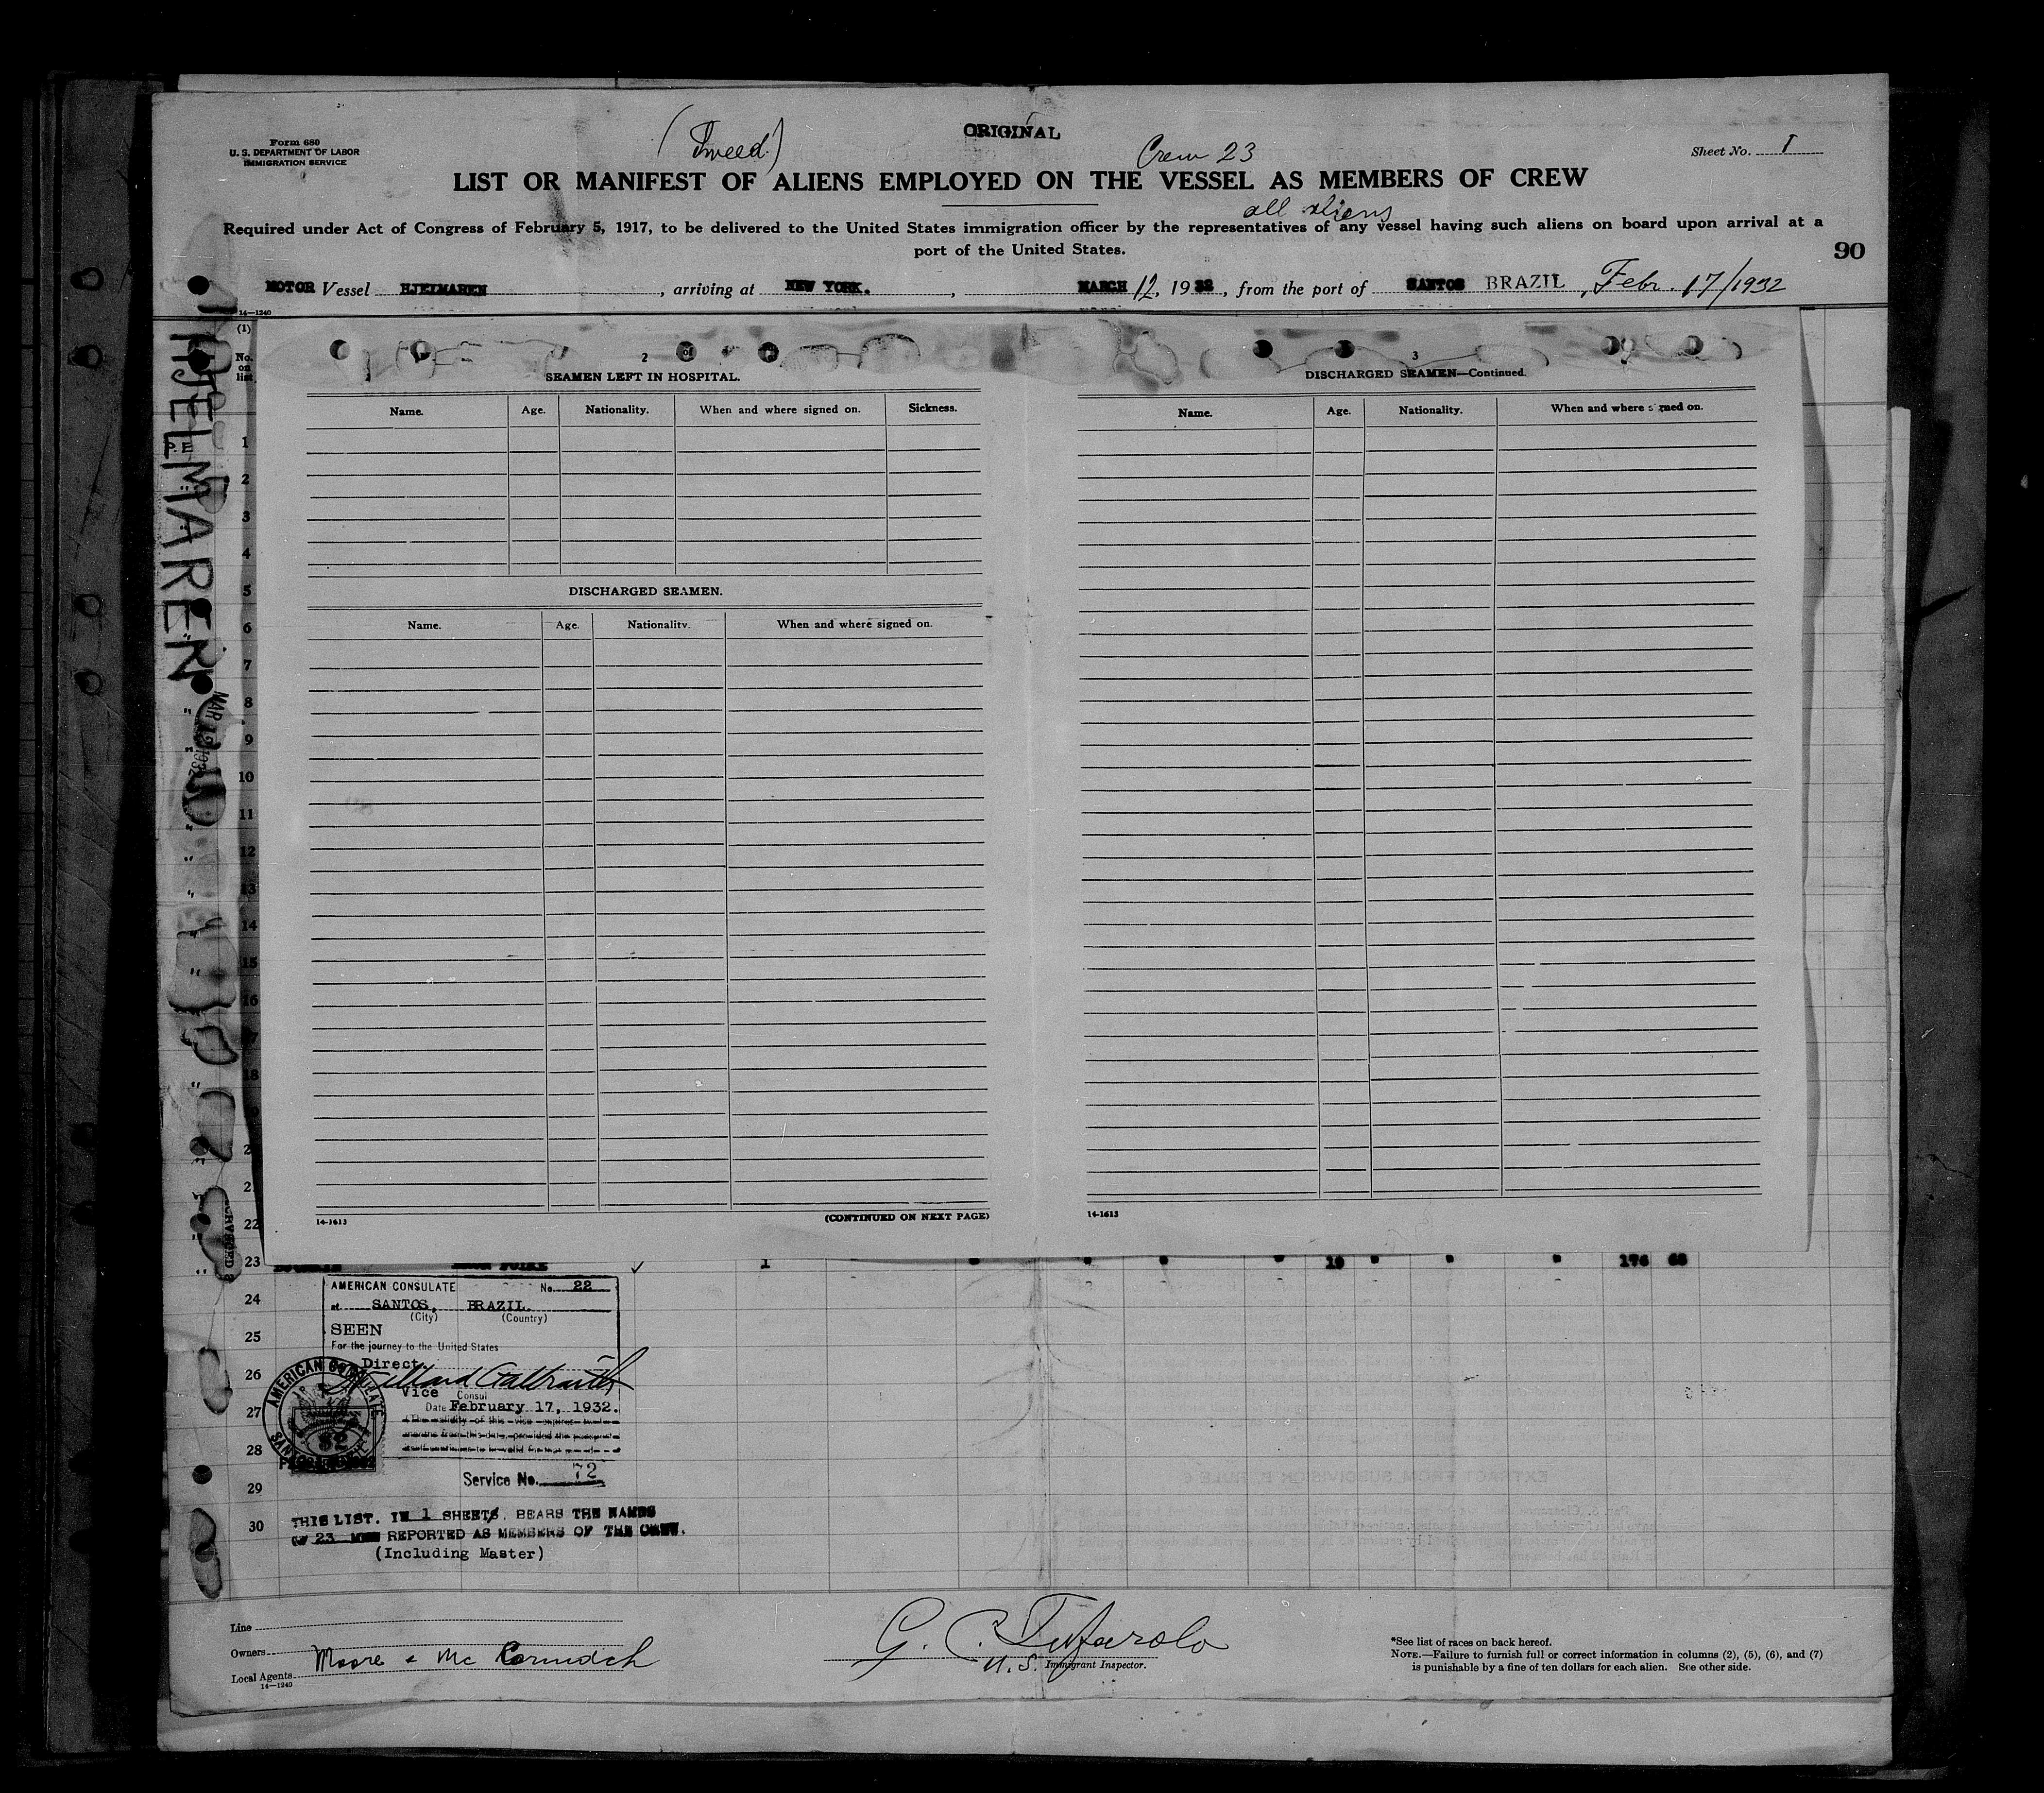 ORIGINAL
Form 680
U. S. DEPARTMENT OF LABOR
IMMIGRATION SERVICE
(Tweed)
Crew 23
Sheet No. 1
LIST OR MANIFEST OF ALIENS EMPLOYED ON THE VESSEL AS MEMBERS OF CREW
all aliens
Required under Act of Congress of February 5, 1917, to be delivered to the United States immigration officer by the representatives of any vessel having such aliens on board upon arrival at a
port of the United States.
90
MOTOR Vessel HJELMAREN, arriving at NEW YORK., MARCH 12, 1932, from the port of SANTOS BRAZIL, Febr. 17/1932
14—1240
HJELMAREN
MAR 12 1932
P.E
(1)
No. on list
2
SEAMEN LEFT IN HOSPITAL.
Name. Age. Nationality. When and where signed on. Sickness.
DISCHARGED SEAMEN.
Name. Age. Nationality. When and where signed on.
14-1613
(CONTINUED ON NEXT PAGE)
3
DISCHARGED SEAMEN—Continued.
Name. Age. Nationality. When and where signed on.
14-1613
1
2
3
4
5
6
7
8
9
10
11
12
13
14
15
16
18
22
23 1 " " " " 19 " " " 174 68
24
25
26
27
28
29
30
AMERICAN CONSULATE No. 22
at SANTOS, BRAZIL.
(City) (Country)
SEEN
For the journey to the United States
Direct.
Willard Galbraith
Vice Consul
Date February 17, 1932.
Service No. 72
AMERICAN CONSULATE
THIS LIST. IN 1 SHEETS, BEARS THE NAMES
OF 23 MEN REPORTED AS MEMBERS OF THE CREW.
(Including Master)
Line
Owners
Local Agents Moore & Mc Cormack
14—1240
G. C. Tufarolo
U.S. Immigrant Inspector.
*See list of races on back hereof.
NOTE.—Failure to furnish full or correct information in columns (2), (5), (6), and (7)
is punishable by a fine of ten dollars for each alien. See other side.